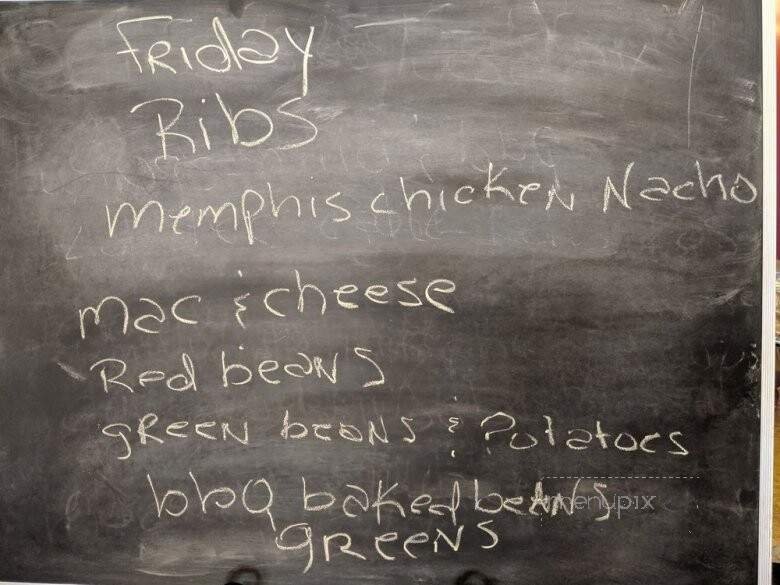 Friday
Ribs
memphis chicken Nacho
mac & cheese
Red beans
green beans & Potatoes
bbQ baked beans
greens
menupix